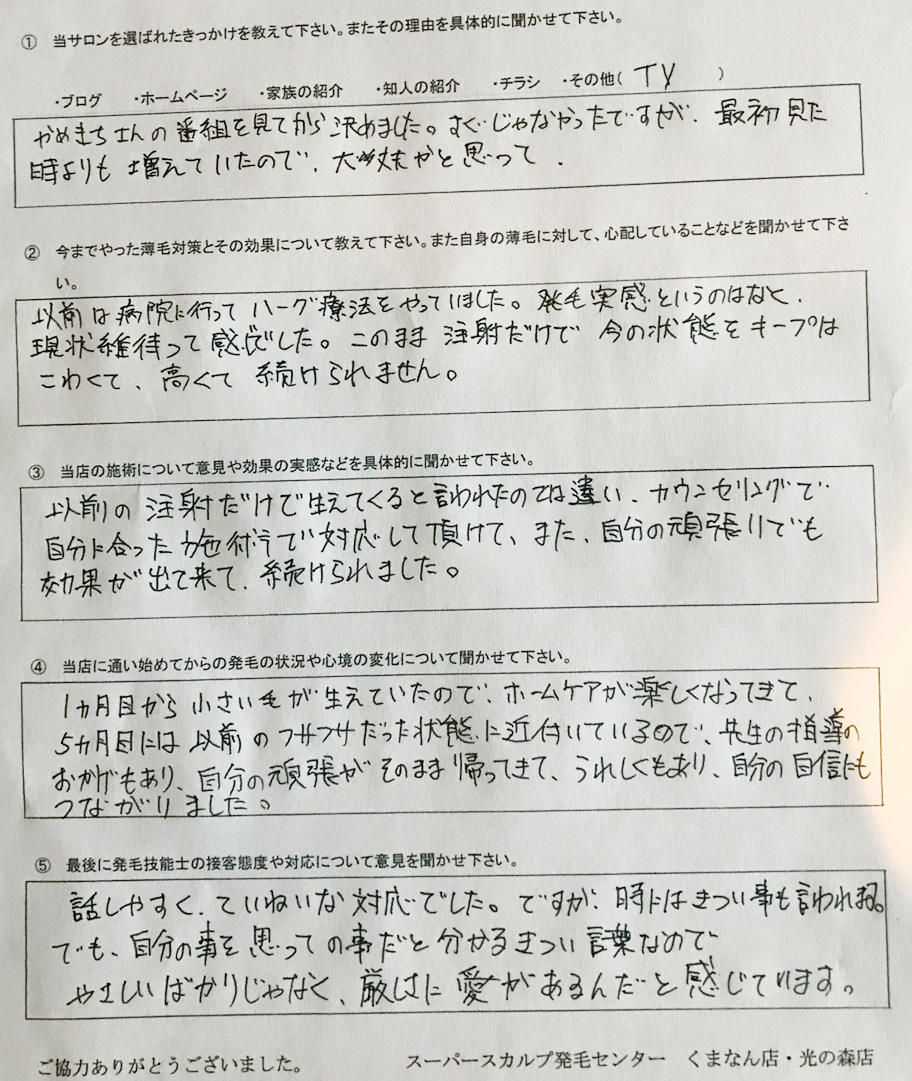 ① 当サロンを選ばれたきっかけを教えて下さい。またその理由を具体的に聞かせて下さい。
・ブログ ・ホームページ ・家族の紹介 ・知人の紹介 ・チラシ ・その他( TV )
やめきちさんの番組を見てから決めました。すぐじゃなかったですが、最初見た
時よりも増えていたので、大丈夫かと思って.
② 今までやった薄毛対策とその効果について教えて下さい。また自身の薄毛に対して、心配していることなどを聞かせて下さ
い。
以前は病院に行ってハーグ療法をやっていました。発毛実感というのはなく、
現状維待って感じでした。このまま注射だけで今の状態をキープは
こわくて、高くて続けられません。
③ 当店の施術について意見や効果の実感などを具体的に聞かせて下さい。
以前の注射だけで生えてくると言われたのでは違い、カウンセリングで
自分に合った施術で対応して頂けて、また、自分の頑張りでも
効果が出て来て、続けられました。
④ 当店に通い始めてからの発毛の状況や心境の変化について聞かせて下さい。
1ヵ月目から小さい毛が生えていたので、ホームケアが楽しくなってきて、
5ヵ月目には以前のフサフサだった状態に近付いているので、先生の指導の
おかげもあり、自分の頑張がそのまま帰ってきて、うれしくもあり、自分の自信にも
つながりました。
⑤ 最後に発毛技能士の接客態度や対応について意見を聞かせ下さい。
話しやすく、ていねいな対応でした。ですが、時にはきつい事も言われます。
でも、自分の事を思っての事だと分かるきつい言葉なので
やさしいばかりじゃなく、厳しさに愛があるんだと感じています。
ご協力ありがとうございました。 スーパースカルプ発毛センター くまなん店・光の森店